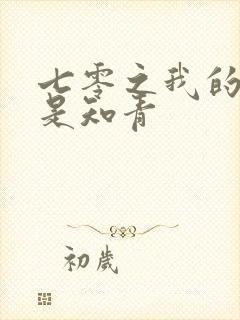 七零之我的
是知青
初歲